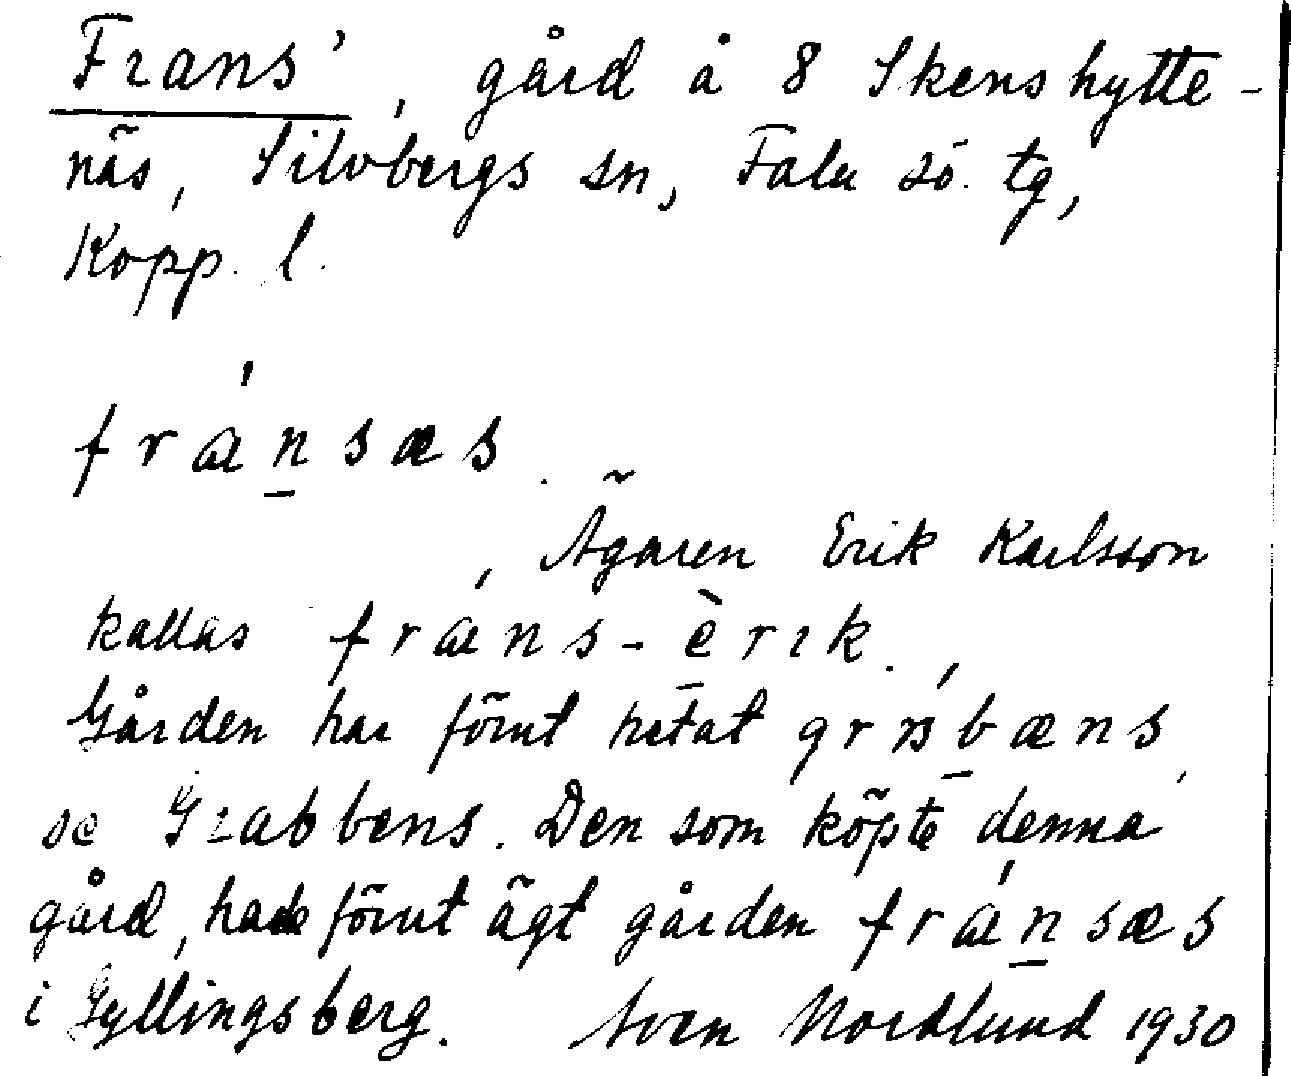 Frans', gård å 8 Skenshytte-
näs, Silvbergs sn, Falu sö. tg,
Kopp. l.
frænsæs.
Ägaren Erik Karlsson
kallas fræns-èrık.
Gården har förut hetat
se Grabbens. Den som köpte denna
gård, hade förut ägt gården frænsæs
i Gyllingsberg. Sven Nordlund 1930